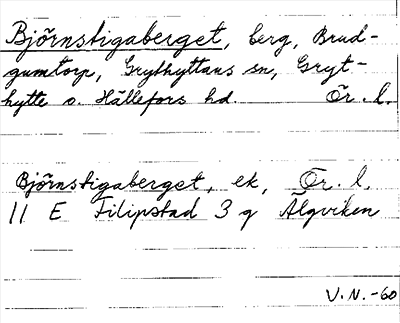 Björnstigaberget, berg, Brud-
gumtorp, Grythyttans sn, Gryt-
hytte o. Hällefors hd. Ör. l.
Björnstigaberget, ek, Ör. l.
11 E Filipstad 3 g Älgviken
V.N. -60